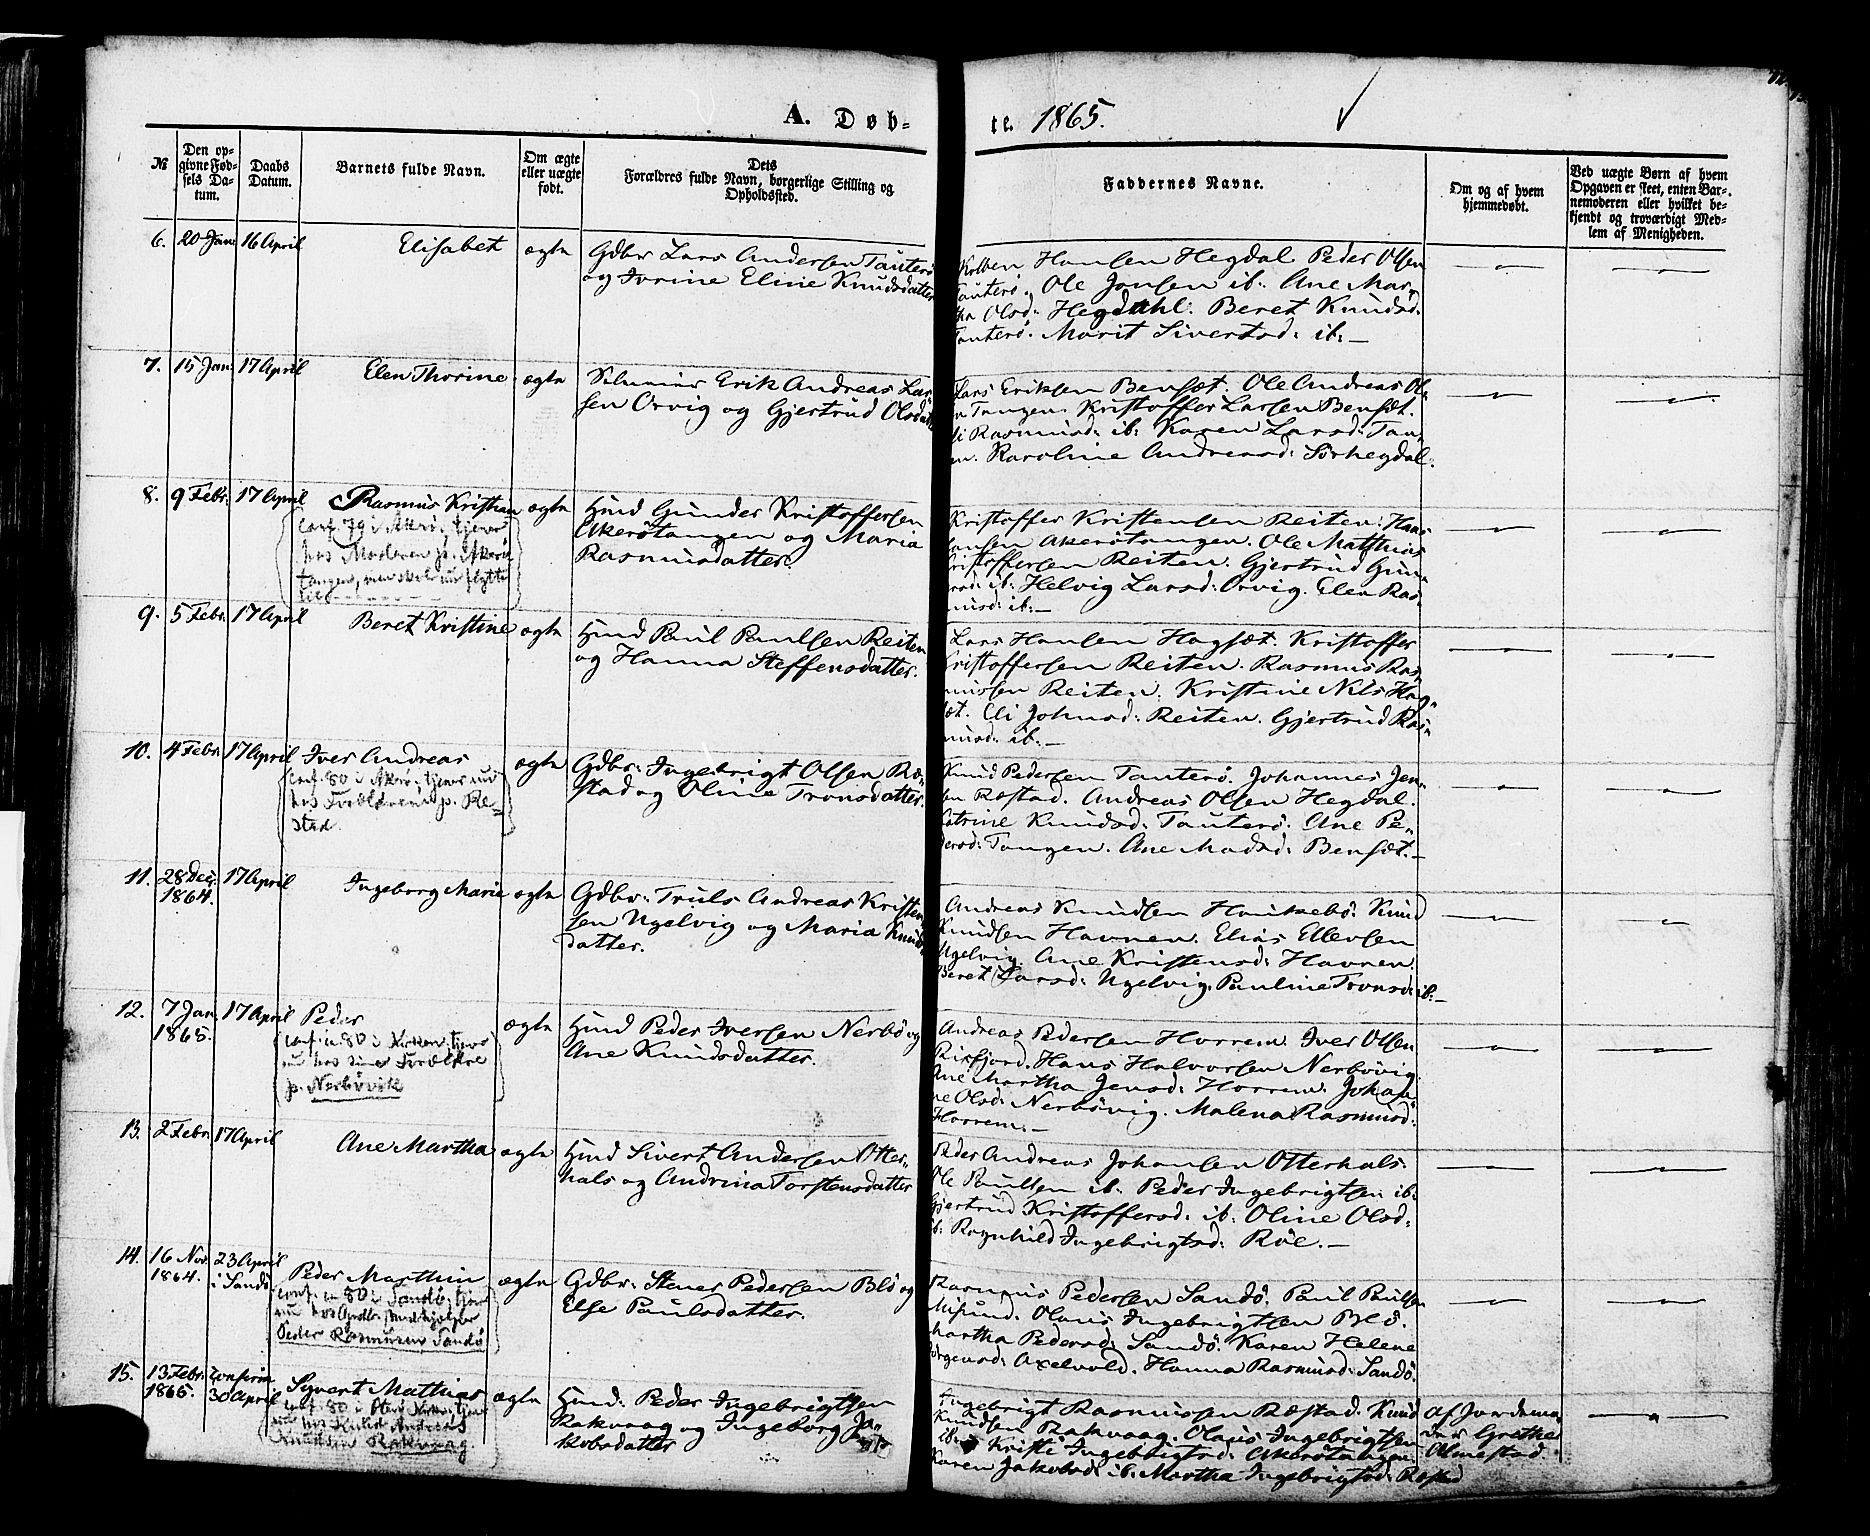 A. Døb-
te. 1865.
№
Den op-
givne Fød-
sels Da-
tum.
Daabs
Datum.
Barnets fulde Navn.
Om ægte
eller uægte
født.
Dets
Forældres fulde Navn, borgerlige Stilling og
Opholdssted.
Faddernes Navne.
Om og af hvem
hjemmedøbt.
Ved uægte Børn af hvem
Opgaven er skeet, enten Bar-
nemoderen eller hvilket be-
kjendt og troværdigt Med-
lem af Menigheden.
6. 20 Jan 16 April Elisabet ægte
Gdbr Lars Andersen Tauterö
og Ivrine Eline Knudsdatter
Hansen Hegdal Peder Olsen
Tauterö. Ole Jonsen ib: Ane Mar-
tha Olsd: Hegdahl. Beret Knudsd:
Tauterö. Marit Siversd: ib:
7. 15 Jan 17 April Elen Thorine ægte
Erik Andreas Lar-
sen Orvig og Gjertrud Olsdatter
Lars Eriksen Bensæt. Ole Andreas Ol-
sen Tangen. Kristoffer Larsen Bensæt.
Rasmusd: ib: Karen Larsd: Tan-
gen. Karoline Andreasd: Sörhegdal.
8. 9 Febr: 17 April Rasmus Kristian ægte
conf. 79 i Akerö, tjener
hos Moderen p. Akerö
tangen, men skal nu flytte
Hmd Gunder Kristoffersen
Akerötangen og Maria
Rasmusdatter.
Kristoffer Kristensen Reiten. Hans
Hansen Akerötangen. Ole Matthias
Kristoffersen Reiten. Gjertrud Gun-
dersd: ib: Helvig Larsd: Orvig. Elen Ras-
musd: ib:
9. 5 Febr. 17 April Beret Kristine ægte
Hmd Paul Paulsen Reiten
og Hanna Steffensdatter.
Lars Hansen Hagset. Kristoffer
Kristoffersen Reiten. Rasmus Ras-
mussen Reiten. Kristine Nils Hag-
set. Eli Johnsd: Reiten. Gjertrud Ras-
musd: ib:
10. 4 Febr. 17 April Iver Andreas ægte
conf. 80 i Akerö, tjener nu
hos Forældrene p. Re-
stad.
Gdbr: Ingebrigt Olsen Ræ-
stad og Oline Tronsdatter.
Knud Pedersen Tauterö. Johannes Jen-
sen Ræstad. Andreas Olsen Hegdal.
Katrine Knudsd: Tauterö. Ane Pe-
dersd: Tangen. Ane Madsd: Bensæt.
11. 28 Dec. 17 April Ingeborg Marie ægte
1864.
Gdbr: Truls Andreas Kristen-
sen Ugelvig og Maria Knuds-
datter.
Andreas Knudsen Haukebö. Knud
Knudsen Havnen. Elias Ellevsen
Ugelvig. Ane Kristensd: Havnen.
Beret Larsd: Ugelvig. Pauline Tronsd: ib:
12. 7 Jan. 17 April Peder ægte
1865.
conf. 80 i Kirken, tjener
nu hos sine Forældre
p. Nerbövik
Hmd Peder Iversen Nerbö og
Ane Knudsdatter.
Andreas Pedersen Horrem. Iver Olsen
Risfjord. Hans Halvorsen Nerbövig.
Ane Martha Jensd: Horrem. Johan-
ne Olsd: Nerbövig. Malena Rasmusd:
Horrem.
13. 2 Febr. 17 April Ane Martha ægte
Hmd Sivert Andersen Otter-
hals og Andrina Torstensdatter
Peder Andreas Johansen Otterhals
Ole Paulsen ib: Peder Ingebrigtsen ib:
Gjertrud Kristoffersd: ib: Oline Olsd:
ib: Ragnhild Ingebrigtsd: Röe.
14. 16 Nov. 23 April Peder Marthin ægte
1864. i Sandö
conf. 80 i Sandö, tjener
nu hos
Peder Rasmusen Sandö
Gdbr: Stener Pedersen Blö og
Else Paulsdatter.
Rasmus Pedersen Sandö. Paul Paulsen
Misund. Olaus Ingebrigtsen Blö.
Martha Pedersd: Sandö. Karen Helene
Jörgensd: Axelvold. Hanna Rasmusd: Sandö.
15. 13 Febr. confirm. Syvert Mathias ægte
1865. 30 April
conf. 80 i
nu hos Andreas
Knudsen Rakvaag
Hmd: Peder Ingebrigtsen
Rakvaag og Ingeborg Ja-
kobsdatter
Ingebrigt Rasmussen Ræstad. Knud
Knudsen Rakvaag. Olaus Ingebrigtsen
ib: Kristi Ingebrigtsd: Akerötangen
Karen Jakobsd: ib: Martha Ingebrigtsd: Ræstad
af Jordemo-
der Grethe
Olmestad.